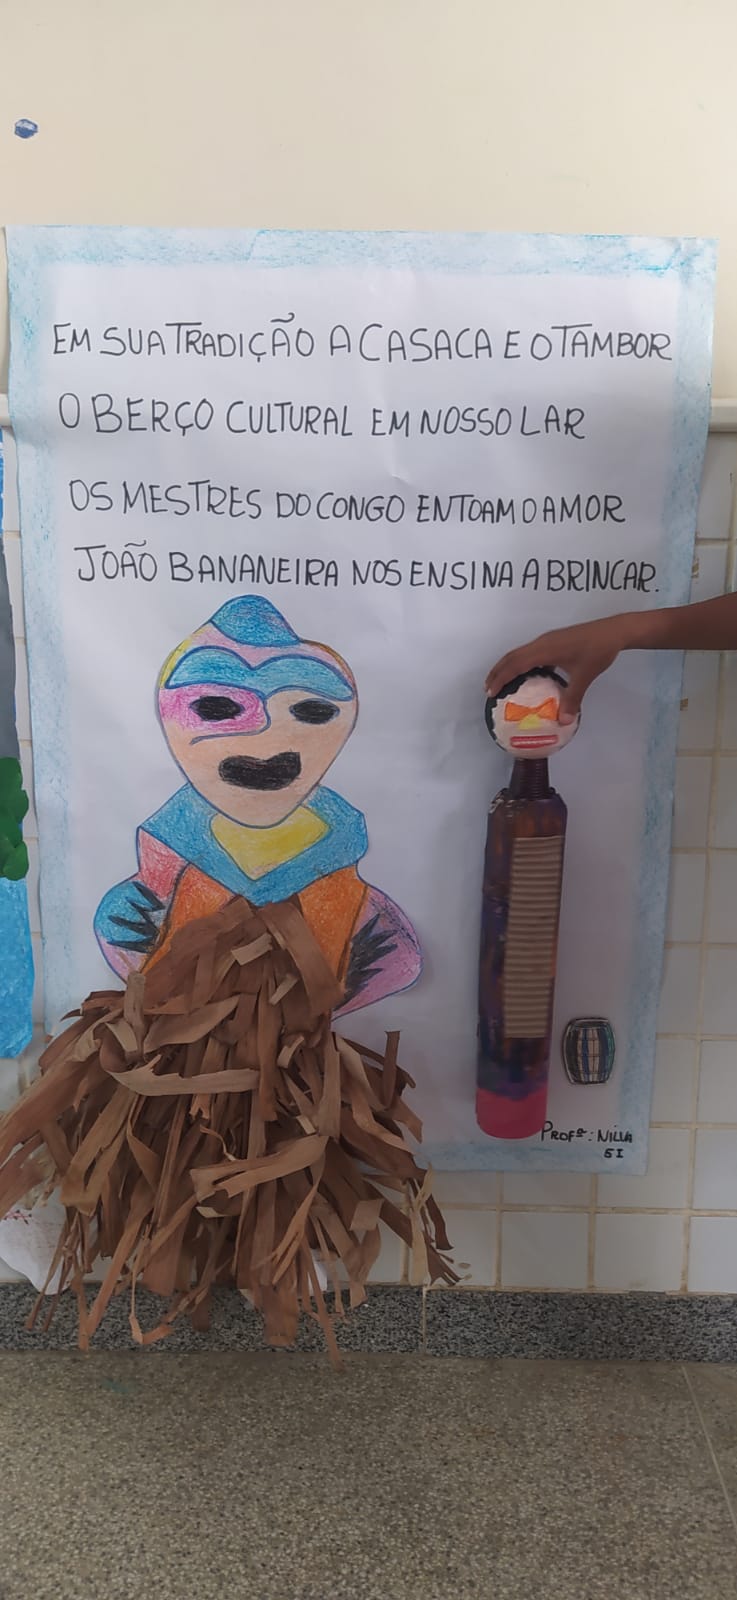 EM SUA TRADIÇÃO A CASACA E O TAMBOR
O BERÇO CULTURAL EM NOSSO LAR
OS MESTRES DO CONGO ENTOAM O AMOR
JOÃO BANANEIRA NOS ENSINA A BRINCAR.
PROFª: NILVA
5 I